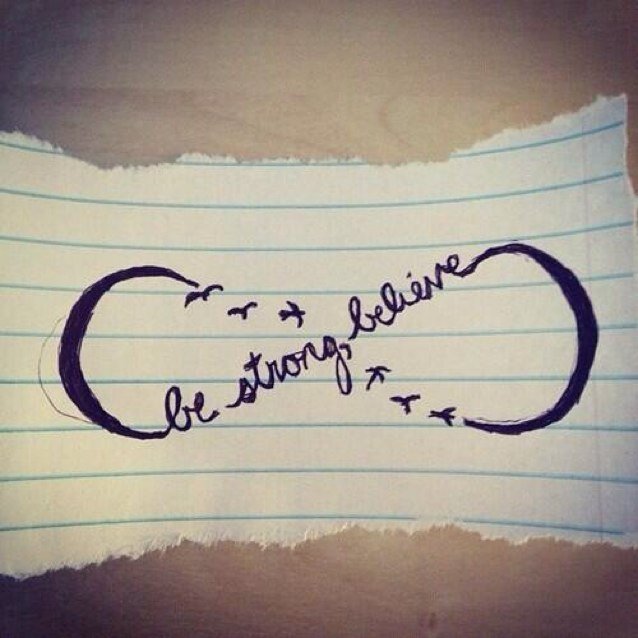 be strong, believe